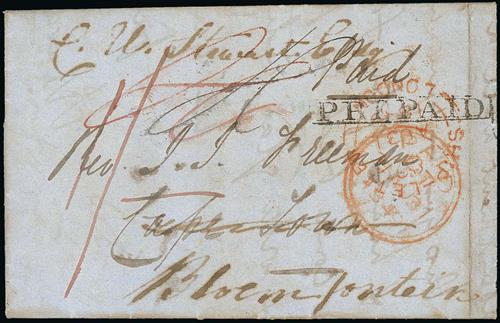 C. U. Stewart Esq
Paid
PREPAID
Rev. J. J. Freeman
Cape Town
Bloemfontein